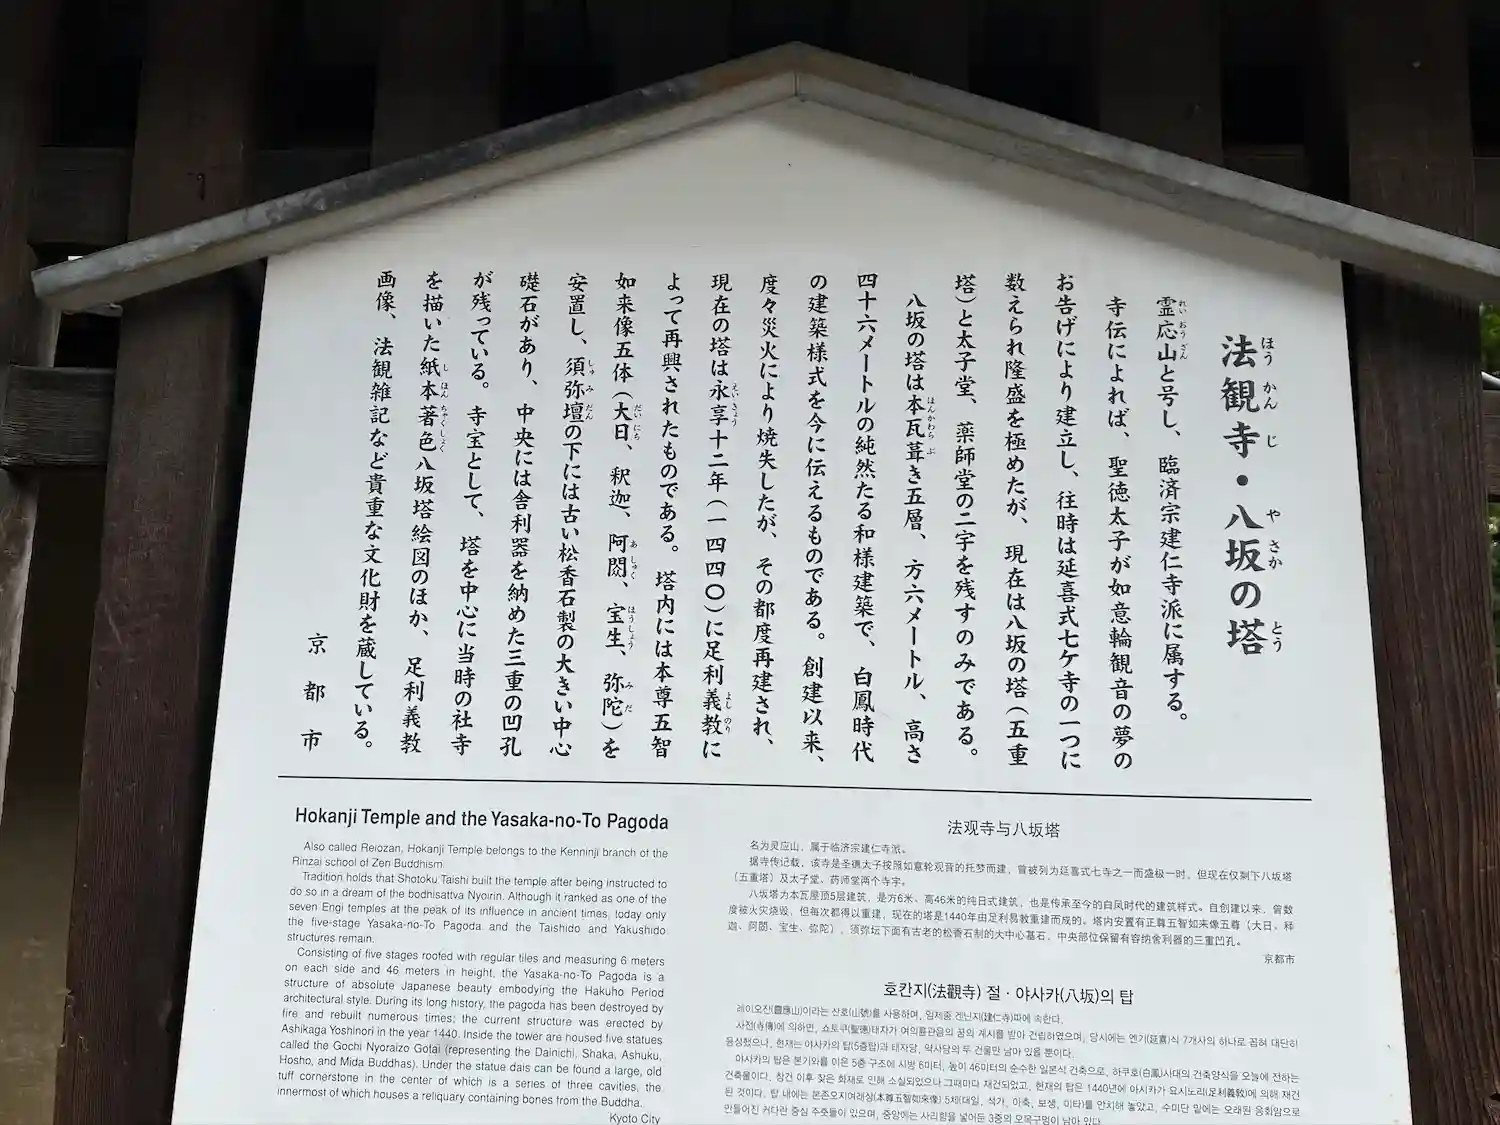 法観寺・八坂の塔
霊応山と号し、臨済宗建仁寺派に属する。
寺伝によれば、聖徳太子が如意輪観音の夢の
お告げにより建立し、往時は延喜式七ケ寺の一つに
数えられ隆盛を極めたが、現在は八坂の塔（五重
塔）と太子堂、薬師堂の二宇を残すのみである。
八坂の塔は本瓦葺き五層、方六メートル、高さ
四十六メートルの純然たる和様建築で、白鳳時代
の建築様式を今に伝えるものである。創建以来、
度々災火により焼失したが、その都度再建され、
現在の塔は永享十二年（一四四〇）に足利義教に
よって再興されたものである。塔内には本尊五智
如来像五体（大日、釈迦、阿閦、宝生、弥陀）を
安置し、須弥壇の下には古い松香石製の大きい中心
礎石があり、中央には舎利器を納めた三重の凹孔
が残っている。寺宝として、塔を中心に当時の社寺
を描いた紙本著色八坂塔絵図のほか、足利義教
画像、法観雑記など貴重な文化財を蔵している。
京都市
Hokanji Temple and the Yasaka-no-To Pagoda
Also called Reiozan, Hokanji Temple belongs to the Kenninji branch of the
Rinzai school of Zen Buddhism.
Tradition holds that Shotoku Taishi built the temple after being instructed to
do so in a dream of the bodhisattva Nyoirin. Although it ranked as one of the
seven Engi temples at the peak of its influence in ancient times, today only
the five-stage Yasaka-no-To Pagoda and the Taishido and Yakushido
structures remain.
Consisting of five stages roofed with regular tiles and measuring 6 meters
on each side and 46 meters in height, the Yasaka-no-To Pagoda is a
structure of absolute Japanese beauty embodying the Hakuho Period
architectural style. During its long history, the pagoda has been destroyed by
fire and rebuilt numerous times; the current structure was erected by
Ashikaga Yoshinori in the year 1440. Inside the tower are housed five statues
called the Gochi Nyoraizo Gotai (representing the Dainichi, Shaka, Ashuku,
Hosho, and Mida Buddhas). Under the statue dais can be found a large, old
tuff cornerstone in the center of which is a series of three cavities, the
innermost of which houses a reliquary containing bones from the Buddha.
Kyoto City
法观寺与八坂塔
名为灵应山，属于临济宗建仁寺派。
据寺传记载，该寺是圣德太子按照如意轮观音的托梦而建，曾被列为延喜式七寺之一而盛极一时，但现在仅剩下八坂塔
（五重塔）及太子堂、药师堂两个寺宇。
八坂塔为本瓦屋顶5层建筑，是方6米、高46米的纯日式建筑，也是传承至今的白凤时代的建筑样式。自创建以来，曾数
度被火灾烧毁，但每次都得以重建，现在的塔是1440年由足利易教重建而成的。塔内安置有正尊五智如来像五尊（大日、释
迦、阿閦、宝生、弥陀），须弥坛下面有古老的松香石制的大中心墓石，中央部位保留有容纳舍利器的三重凹孔。
京都市
호칸지(法觀寺) 절 · 야사카(八坂)의 탑
레이오잔(靈應山)이라는 산호(山號)를 사용하며, 임제종 겐닌지(建仁寺)파에 속한다.
사전(寺傳)에 의하면, 쇼토쿠(聖德)태자가 여의륜관음의 꿈의 계시를 받아 건립하였으며, 당시에는 엔기(延喜)식 7개사의 하나로 꼽혀 대단히
융성했으나, 현재는 야사카의 탑(5층탑)과 태자당, 약사당의 두 건물만 남아 있을 뿐이다.
야사카의 탑은 본기와를 이은 5층 구조에 사방 6미터, 높이 46미터의 순수한 일본식 건축으로, 하쿠호(白鳳)시대의 건축양식을 오늘에 전하는
건축물이다. 창건 이후 잦은 화재로 인해 소실되었으나 그때마다 재건되었고, 현재의 탑은 1440년에 아시카가 요시노리(足利義敎)에 의해 재건
된 것이다. 탑 내에는 본존오지여래상(本尊五智如來像) 5체(대일, 석가, 아축, 보생, 미타)를 안치해 놓았고, 수미단 밑에는 오래된 응회암으로
만들어진 커다란 중심 주춧돌이 있으며, 중앙에는 사리함을 넣어둔 3중의 오목구멍이 남아 있다.